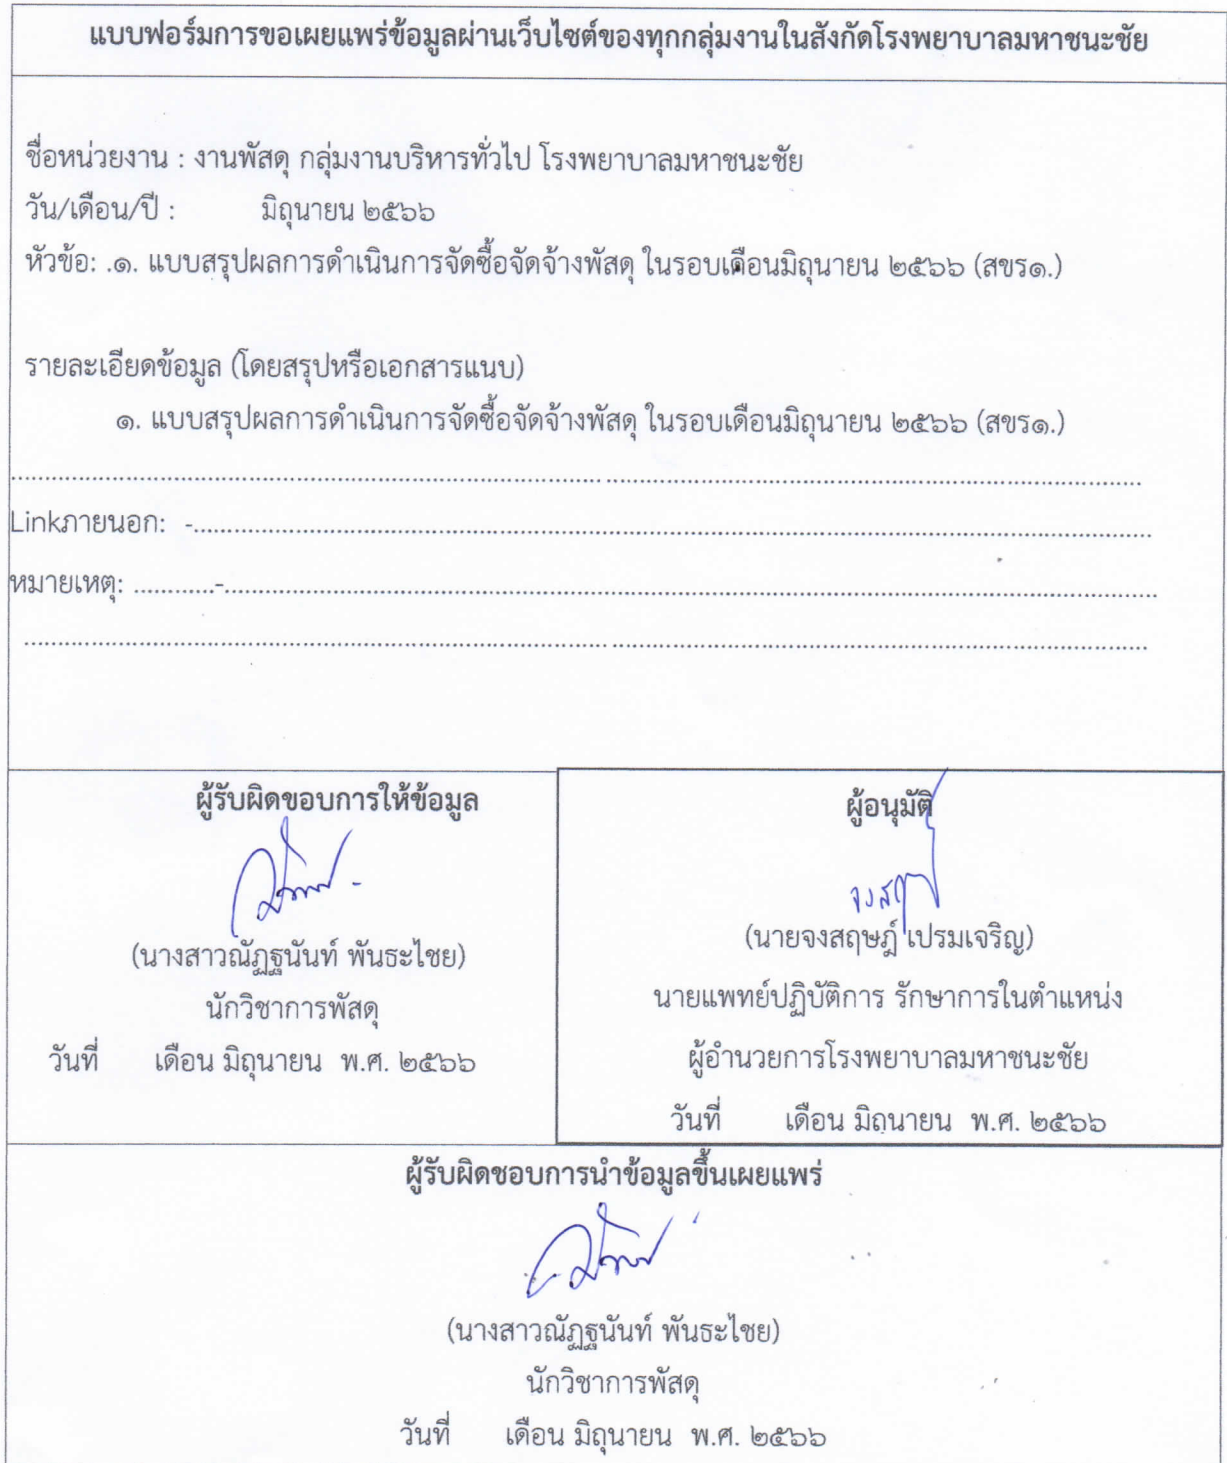 แบบฟอร์มการขอเผยแพร่ข้อมูลผ่านเว็บไซต์ของทุกกลุ่มงานในสังกัดโรงพยาบาลมหาชนะชัย
ชื่อหน่วยงาน : งานพัสดุ กลุ่มงานบริหารทั่วไป โรงพยาบาลมหาชนะชัย
วัน/เดือน/ปี : มิถุนายน ๒๕๖๖
หัวข้อ: .๑. แบบสรุปผลการดำเนินการจัดซื้อจัดจ้างพัสดุ ในรอบเดือนมิถุนายน ๒๕๖๖ (สขร๑.)
รายละเอียดข้อมูล (โดยสรุปหรือเอกสารแนบ)
๑. แบบสรุปผลการดำเนินการจัดซื้อจัดจ้างพัสดุ ในรอบเดือนมิถุนายน ๒๕๖๖ (สขร๑.)
Linkภายนอก: -
หมายเหตุ: ............-
ผู้รับผิดขอบการให้ข้อมูล
(นางสาวณัฏฐนันท์ พันธะไชย)
นักวิชาการพัสดุ
วันที่ เดือน มิถุนายน พ.ศ. ๒๕๖๖
ผู้อนุมัติ
จงสฤ
(นายจงสฤษฎ์ เปรมเจริญ)
นายแพทย์ปฏิบัติการ รักษาการในตำแหน่ง
ผู้อำนวยการโรงพยาบาลมหาชนะชัย
วันที่ เดือน มิถุนายน พ.ศ. ๒๕๖๖
ผู้รับผิดชอบการนำข้อมูลขึ้นเผยแพร่
(นางสาวณัฏฐนันท์ พันธะไชย)
นักวิชาการพัสดุ
วันที่ เดือน มิถุนายน พ.ศ. ๒๕๖๖